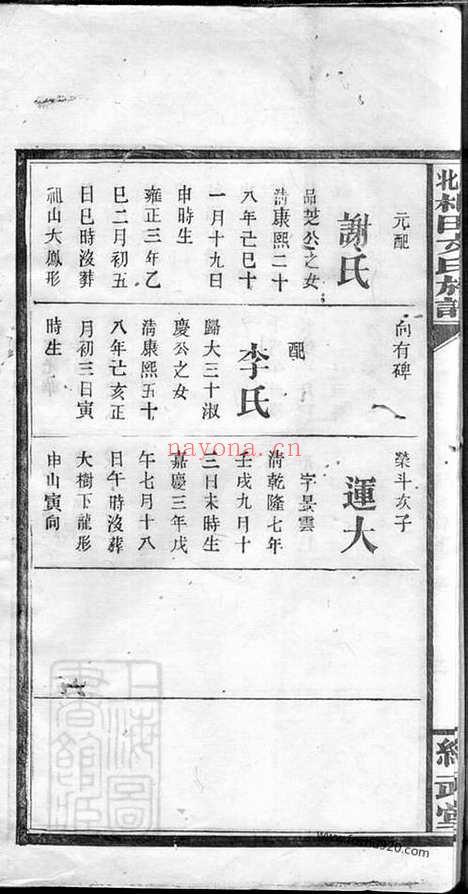 元配
謝氏
品芝公之女
清康熙二十
八年己巳十
一月十九日
申時生
雍正三年乙
巳二月初五
日巳時沒葬
祖山大鳳形
向有碑
配
李氏
歸大三十淑
慶公之女
清康熙五十
八年己亥正
月初三日寅
時生
榮斗次子
運大
字景雲
清乾隆七年
壬戌九月十
三日未時生
嘉慶三年戊
午七月十八
日午時沒葬
大樹下龍形
申山寅向
nayona.cn
上海圖
書館